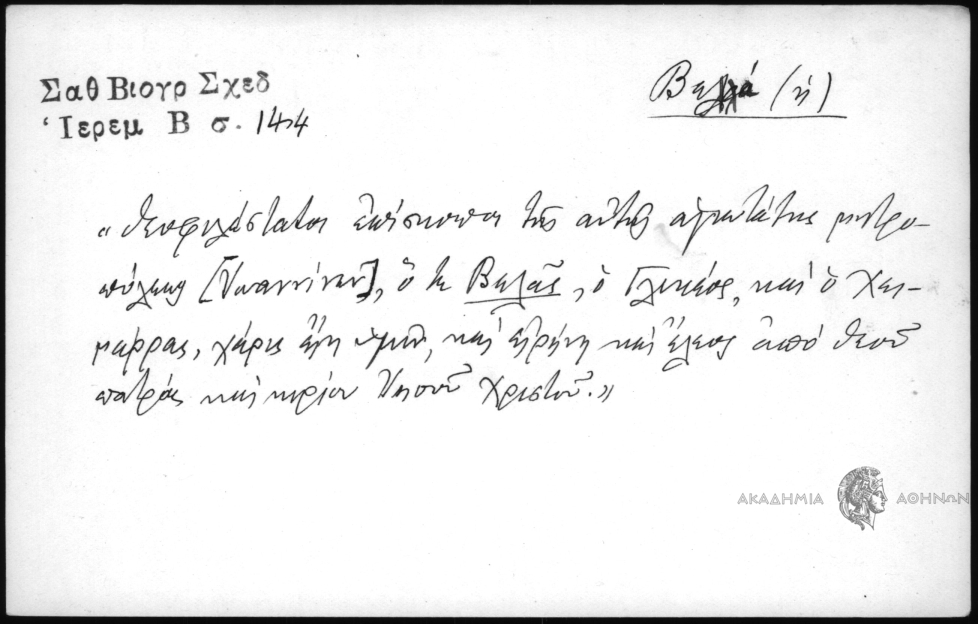 Σαθ Βιογρ Σχεδ
Ἱερεμ Β σ. 144
Βελλά (ἡ)
«θεοφιλέστατοι ἐπίσκοποι τῆς αὐτῆς ἁγιωτάτης μητρο-
πόλεως [Ἰωαννίνων], ὅ τε Βελᾶς, ὁ Γλυκέος, καὶ ὁ Χει-
μάρρας, χάρις εἴη ὑμῖν, καὶ εἰρήνη καὶ ἔλεος ἀπό θεοῦ
πατρός καὶ κυρίου Ἰησοῦ Χριστοῦ.»
ΑΚΑΔΗΜΙΑ ΑΘΗΝΩΝ